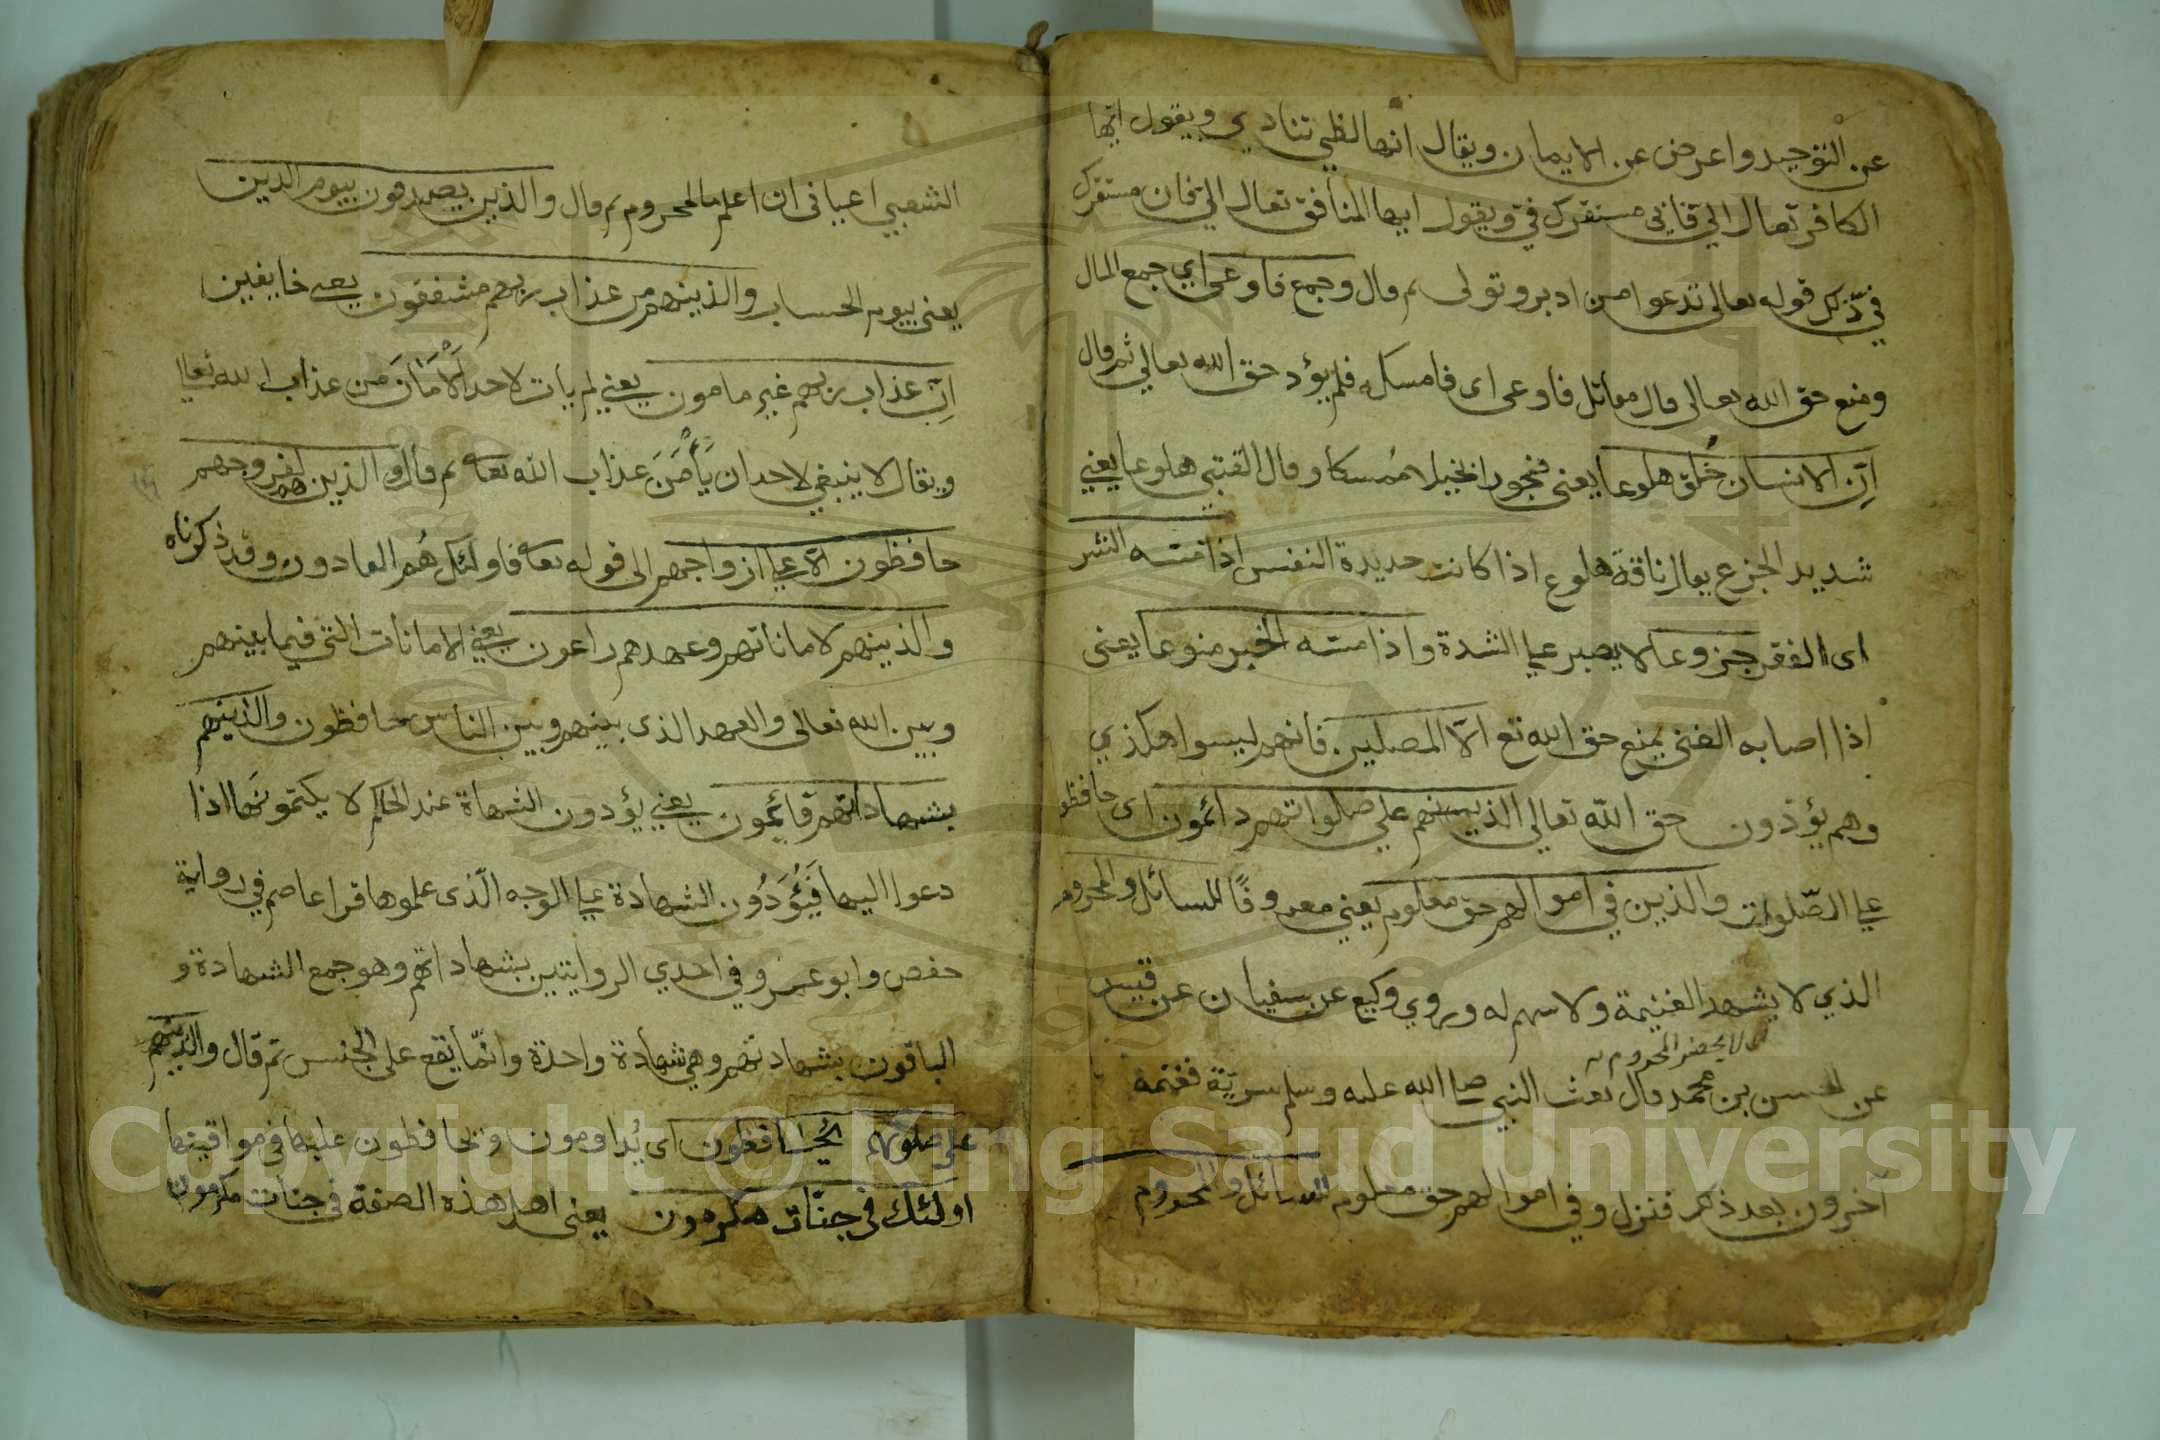 عن التوحيد واعرض عن الايمان ويقال انها لظي تنادي ويقول ايها
الكافر تعال الي فاني مستقرك في ويقول ايها المنافق تعال الي فان مستقرك
في ذلك قوله تعالى تدعوا من ادبر وتولى ثم قال وجمع فاوعى اي جمع المال
ومنع حق الله تعالى قال مقاتل فاوعى اى فامسكه فلم يؤد حق الله تعالي ثم قال
ان الانسان خُلق هلوعا يعنى ضجورا بخيلا مُمسكا وقال القتبي هلوعا يعني
شديد الجزع يقال ناقة هلوع اذا كانت حديدة النفس اذا مسه الشر
اى الفقر جزوعا لا يصبر علي الشدة واذا مسّه الخير منوعا يعنى
اذا اصابه الغنى يمنع حق الله تع الّا المصلين فانهم ليسوا هكذي
وهم يؤدون حق الله تعالي الذينهم علي صلواتهم دائمون اى حافظو
علي الصّلوات والذين في اموالهم حق معلوم يعني معروفًا للسائل والمحروم
الذي لا يشهد الغنيمة ولا سهم له وروي وكيع عن سفيان عن قيس
لا يحضر المحروم
عن الحسن بن محمد قال بعث النبي صلي الله عليه وسلم سريّة فغنمة
آخرون بعد ذكر فنزل وفي اموالهم حق معلوم للسائل والمحروم
الشعبي اعيا فى ان اعلم ما المحروم ثم قال والذين يصدقون بيوم الدين
يعنى بيوم الحساب والذينهم من عذاب ربهم مشفقون يعني خايفين
اِنّ عذاب ربهم غير مامون يعني لم يأت لاحد اَلْاَمَانَ من عذاب الله تعالي
ويقال لا ينبغي لاحد ان يَأْمَنَ عذاب الله تعا ثم قال والذين هم لفروجهم
حافظون الا علي ازواجهم الى قوله تعا فاولئك هُم العادون وقد ذكرناه
والذينهم لاماناتهم وعهدهم راعون يعني الامانات التى فيما بينهم
وبين الله تعالى والعهد الذى بينهم وبين الناس حافظون والذينهم
بشهاداتهم قائمون يعني يؤدون الشهاة عند الحاكم لا يكتمونها اذا
دعوا اليها فَيُؤَدُون الشهادة علي الوجه الّذى علموها قرا عاصم في رواية
حفص وابو عمرو في احدي الروايتين بشهاداتهم وهو جمع الشهادة و
الباقون بشهادتهم وهي شهادة واحدة وانمّا يقع على الجنس ثم قال والذينهم
على صلوتهم يُحافظون اى يُداومون ويحافظون عليها فى مواقيتها
اولئك فى جنّات مكرمون يعنى اهل هذه الصفة فى جنات مكرمون
Copyright © King Saud University